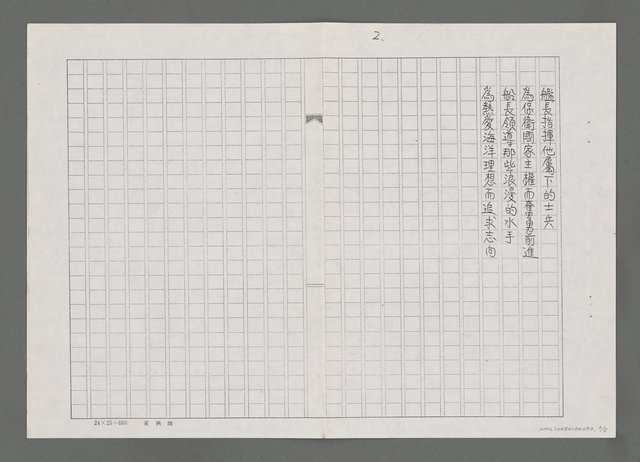 2.
艦長指揮他屬下的士兵
為保衛國家主權而奮勇前進
船長領導那些浪漫的水手
為熱愛海洋理想而追求志向
24×25=600